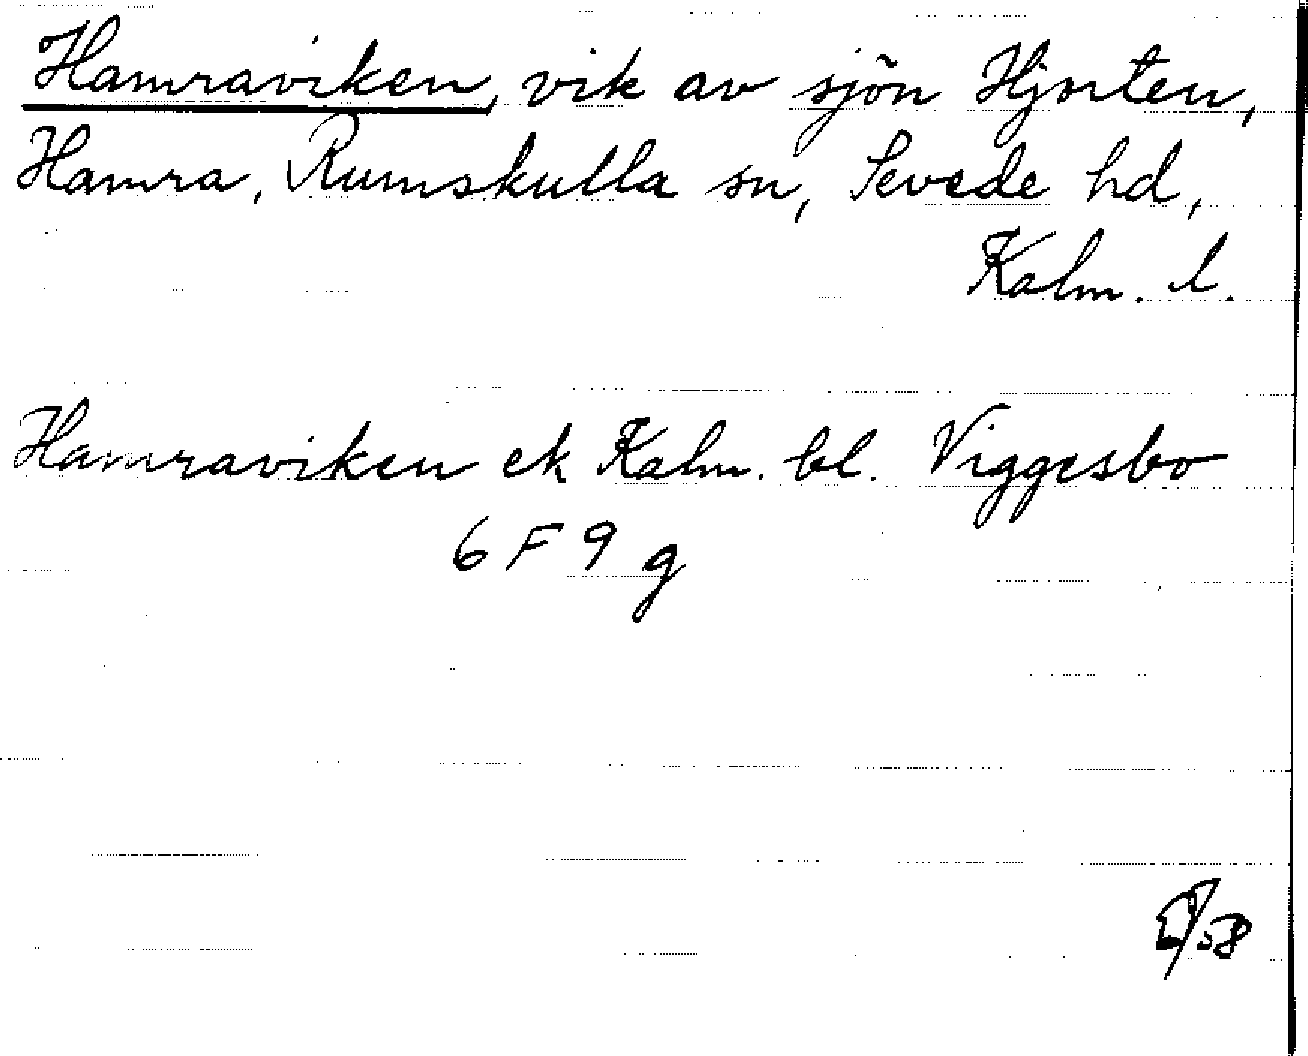 Hamraviken, vik av sjön Hjorten,
Hamra, Rumskulla sn, Sevede hd,
Kalm. l.
Hamraviken ek Kalm. bl. Viggesbo
6 F 9 g
/58